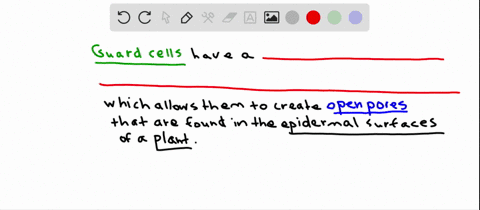 Guard cells have a
which allows them to create open pores
that are found in the epidermal surfaces
of a plant.